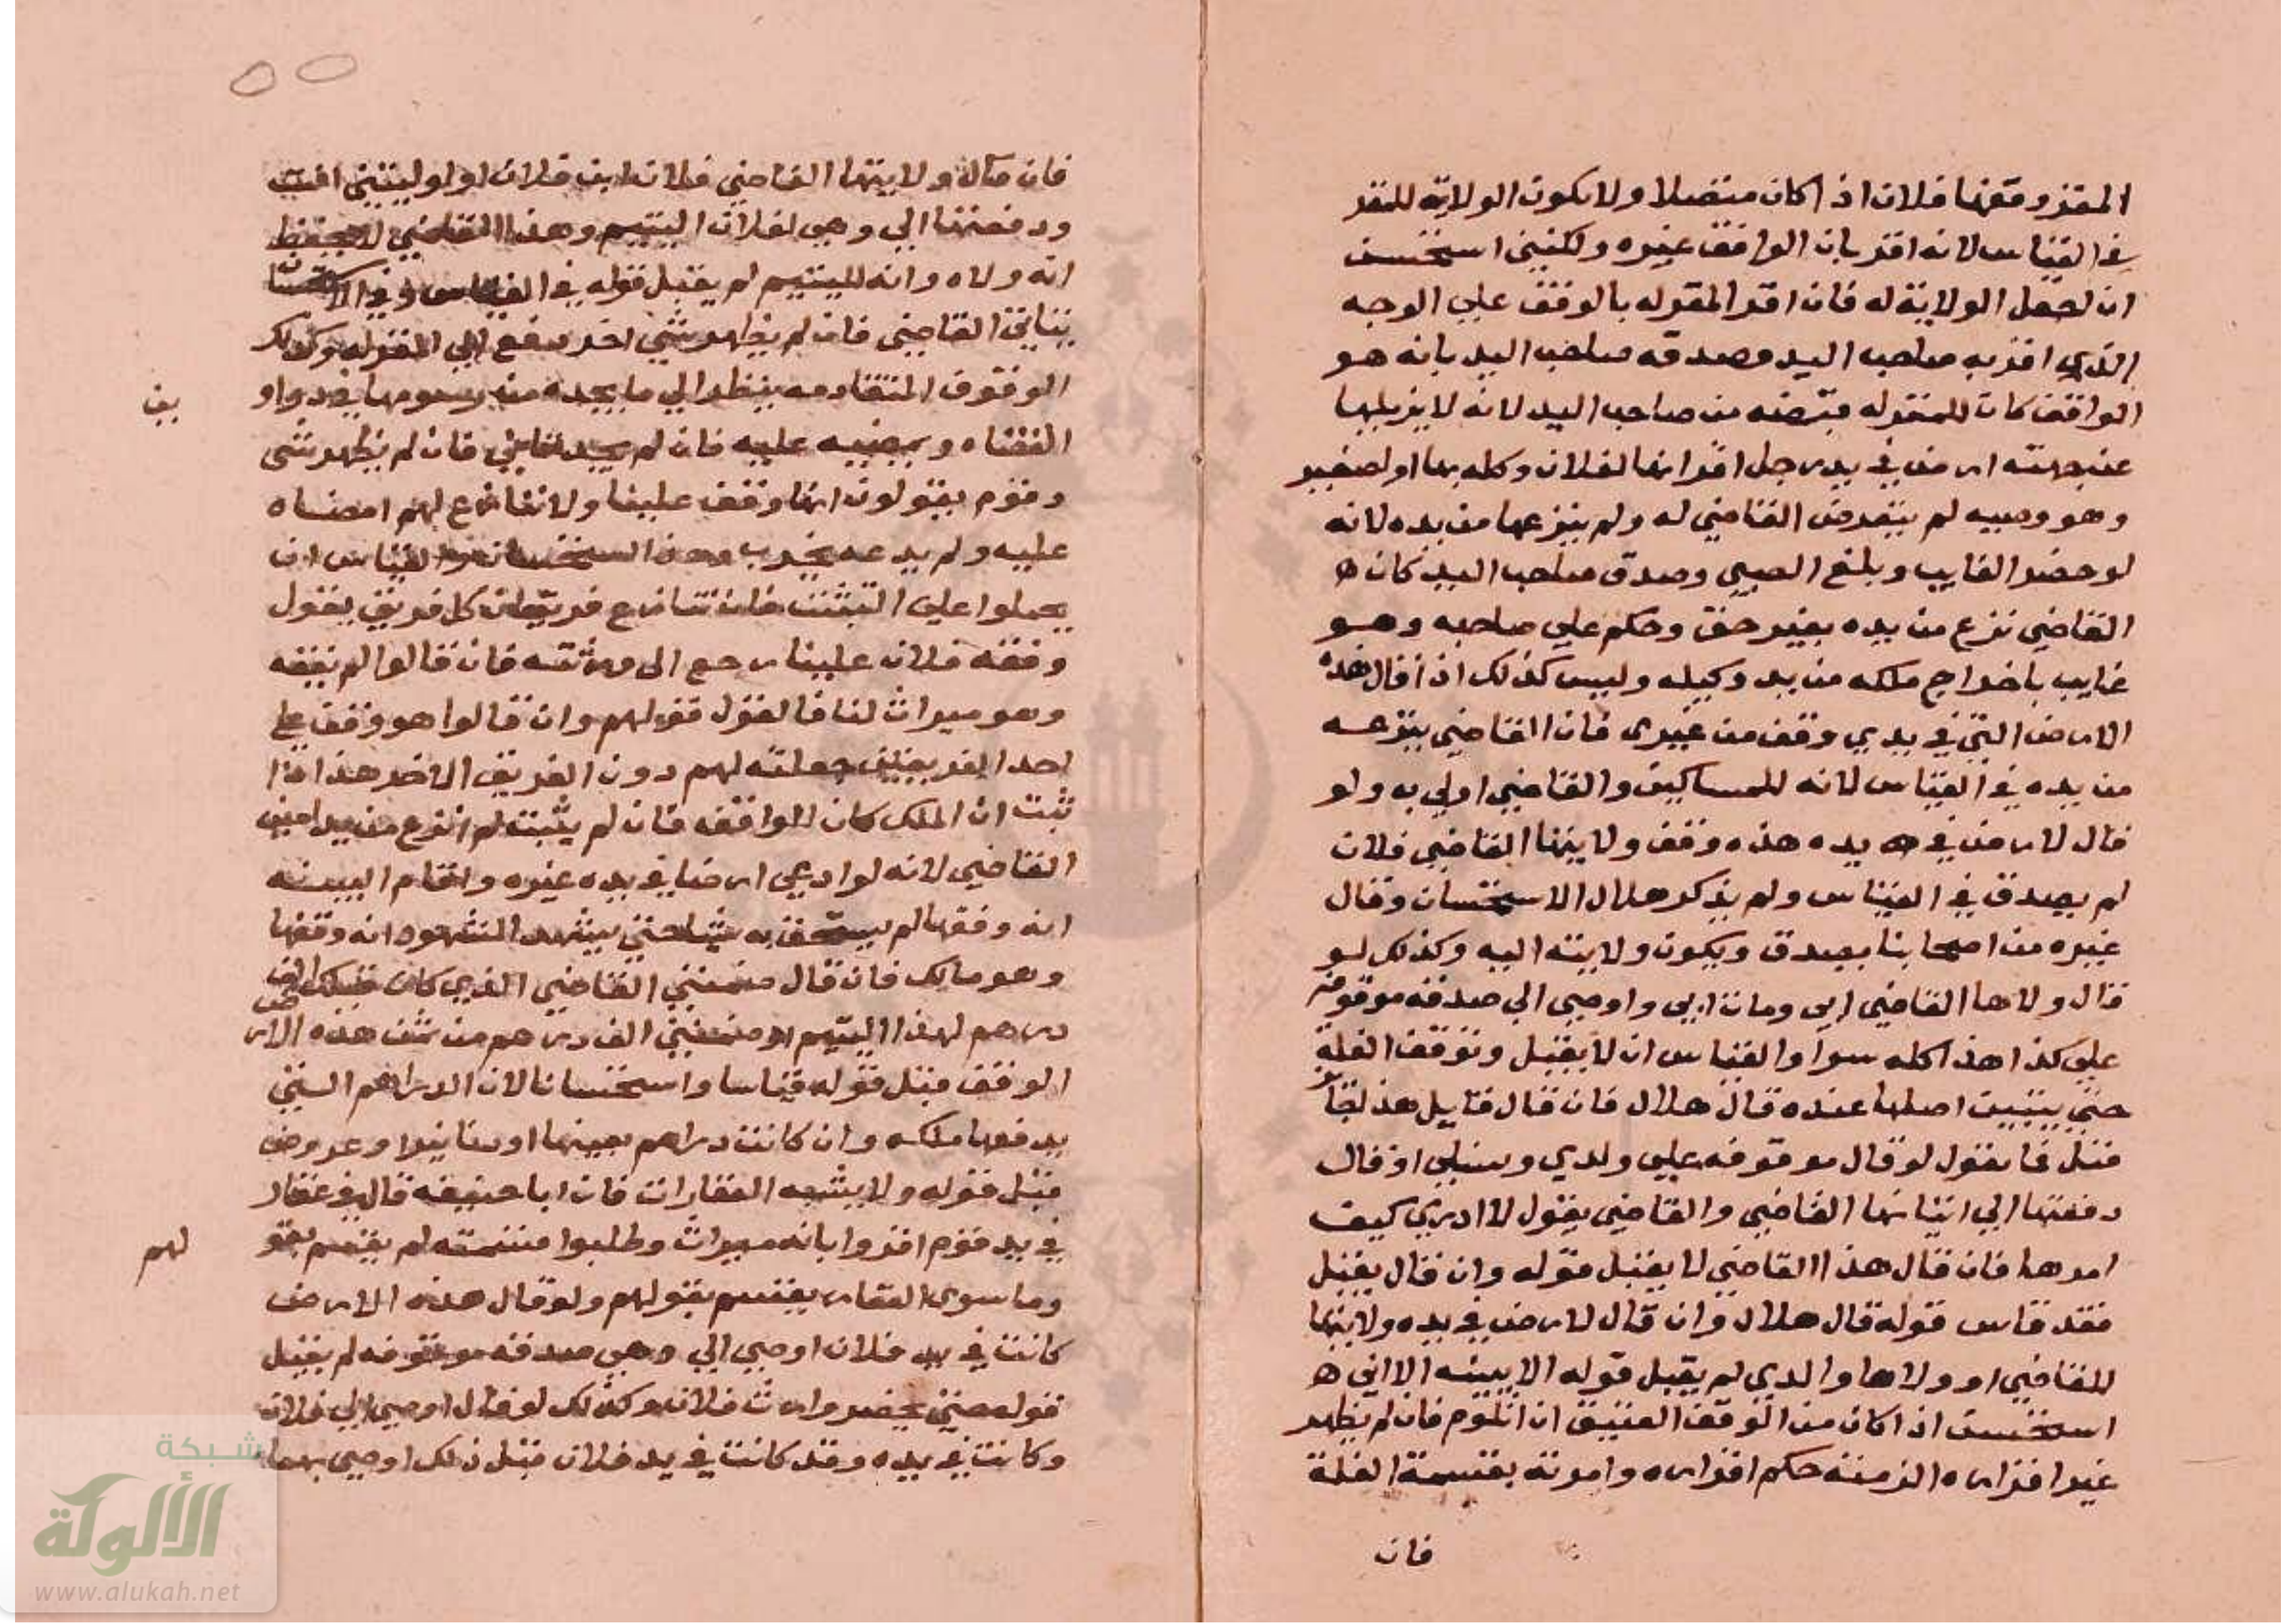 المقر وقفها فلان اذا كان متصلا ولا يكون الولاية للمقر
في القياس لانه اقر بان الواقف غيره ولكنني استحسن
ان اجعل الولاية له فان اقر المقر له بالوقف علي الوجه
الذي اقر به صاحب اليد وصدقه صاحب اليد بانه هو
الواقف كان للمقر له قبضه من صاحب اليد لانه لا يزيلها
عن جهته ارض في يد رجل اقر انها لفلان وكله بها او لصغير
وهو وصيه لم يتعرض القاضي له ولم ينزعها من يده لانه
لو حضر الغايب وبلغ الصبي وصدق صاحب اليد كان ه
القاضي نزع من يده بغير حق وحكم علي صاحبه وهو
غايب باخراج ملكه من يد وكيله وليس كذلك اذا قال هذه
الارض التي في يدي وقف من غيري فان القاضي ينزعه
من يده في القياس لانه للمساكين والقاضي اولي به ولو
قال لارض في يده هذه وقف ولاينها القاضي فلان
لم يصدق في القياس ولم يذكر هلال الاستحسان وقال
غيره من اصحابنا يصدق ويكون ولايته اليه وكذلك لو
قال ولاها القاضي ابي ومات ابي واوصي الي صدقه موقوفه
علي كذا هذا كله سوا والقياس ان لا يقبل وتوقف الغلة
حتي يتبين اصلها عنده قال هلال فان قال قايل هذا
قيل فما يقول لو قال موقوفه علي ولدي ونسلي او قال
دفعتها الي ايتانها القاضي والقاضي يقول لا ادري كيف
امرها فان قال هذا القاضي لا يقبل قوله وان قال يقبل
فقد قاس قوله قال هلال وان قال لارض في يده ولاينها
القاضي او ولاها والدي لم يقبل قوله الا ببينه الا اني ه
استحسن اذا كان من الوقف العتيق ان اتلوم فان لم يظهر
غير اقراره الزمته حكم اقراره وامرته بقسمة الغلة
فان
فان قال ولاينها القاضي فلان ابن فلان او لو ليتني انت
ودفعتها الي وهي لفلان اليتيم وهذا القاضي لا يحفظ
انه ولاه وانه لليتيم لم يقبل قوله في القياس وفي الاستحسان
يتاني القاضي فان لم يظهر شي اخر دفع الي المقر له وكذلك
الوقوف المتقادمه ينظر الي ما يجده من رسومها في دواو
ين
القضاه ويمضيه عليه فان لم يجد فان لم يظهر شي
وقوم يقولون انها وقف علينا ولا تنازع لهم امضاه
عليه ولم يدعه يخرب وهذا استحسان القياس ان
يحملوا علي التثبت فان تنازع فريقان كل فريق يقول
وقفه فلان علينا رجع الي ورثته فان قالوا لم يقفه
وهو ميراث لنا فالقول قولهم وان قالوا هو وقف علي
احد الفريقين جعلته لهم دون الفريق الاخر هذا اذا
ثبت ان الملك كان للواقفه فان لم يثبت لم انزع من يد امين
القاضي لانه لو ادعي ارضا في يده غيره واقام البينه
انه وقفها لم يستحق به شيا حتي يشهد الشهود انه وقفها
وهو مالك فان قال ضمنني القاضي الذي كان قبلك الف
درهم لهذا اليتيم او ضمنني الف درهم من ثمن هذه الارض
الوقف قبل قوله قياسا واستحسانا لان الدراهم التي
يدفعها ملكه وان كانت دراهم بعينها او دنانير او عروض
قبل قوله ولا يشبه العقارات فان ابا حنيفه قال في عقار
في يد قوم اقروا بانه ميراث وطلبوا قسمته لم يقسم بقو
لهم
وما سوي العقار يقسم بقولهم ولو قال هذه الارض
كانت في يد فلان اوصي الي وهي صدقه موقوفه لم يقبل
قوله حتي يحضر وارث فلان وكذلك لو قال اوصي الي فلان
وكانت في يده وقد كانت في يد فلان قبل ذلك اوصي بهما
شبكة
الألوكة
www.alukah.net